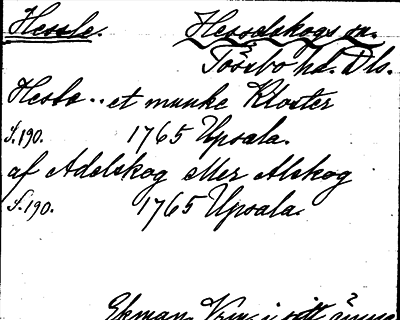 Hessle. Hesselskogs sn.
Tössbo hd. Dls.
Hesle.. et munke Kloster
S.190. 1765 Upsala.
af Adelskog eller Alskog
S.190. 1765 Upsala.
Ekman, i sitt